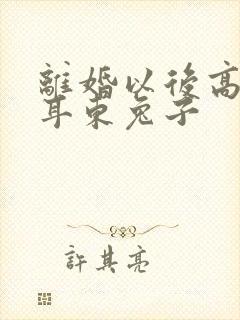 離婚以後高
耳東兔子
許其亮